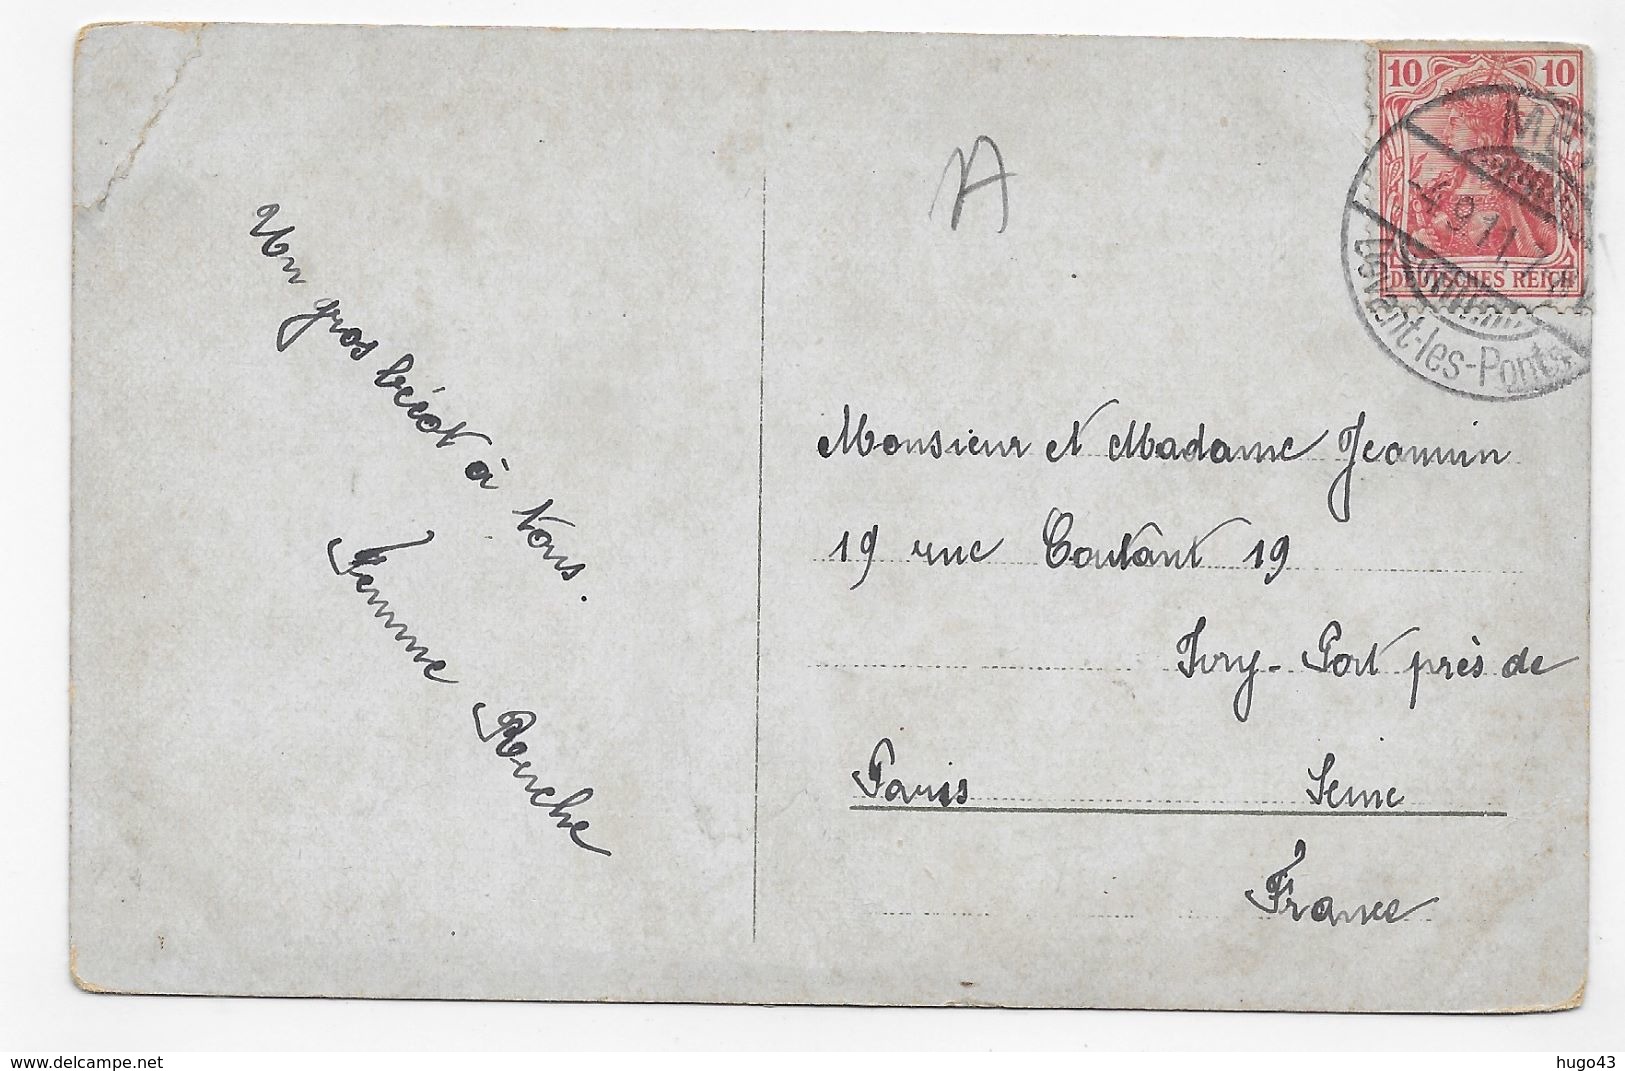 Un gros bécot à
Vous.
Femme Perche
A
10 10
DEUTSCHES REICH
-4.9.11.
Devant-les-Ponts
Monsieur et Madame Jeannin
19 rue Coutant 19
Ivry-Port près de
Paris Seine
France
delcampe.net
hugo43